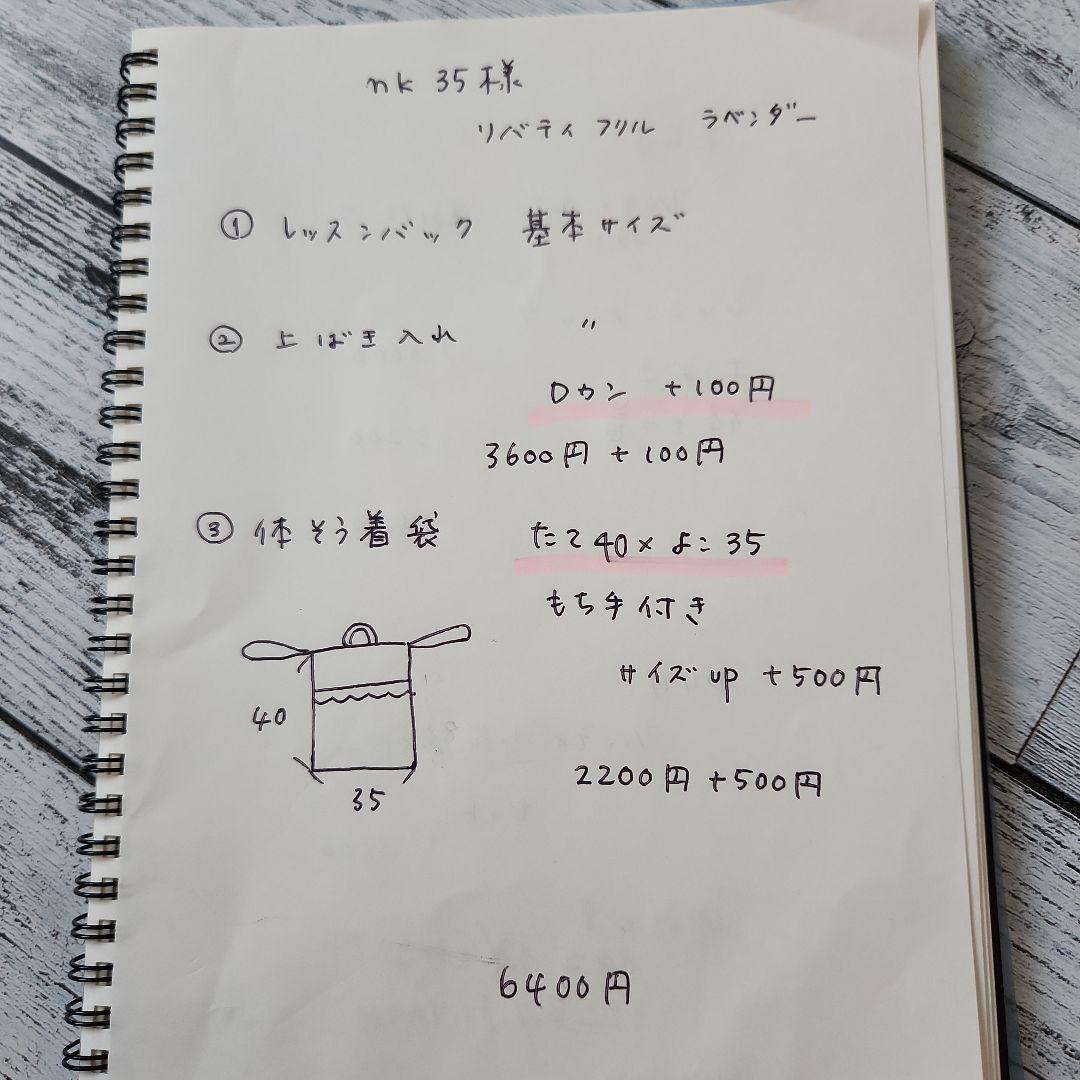 nk 35様
リバティフリル ラベンダー
① レッスンバック 基本サイズ
② 上ばき入れ 〃
Dカン +100円
3600円+100円
③ 体そう着袋 たて40×よこ35
もち手付き
サイズup +500円
40
35
2200円+500円
6400円